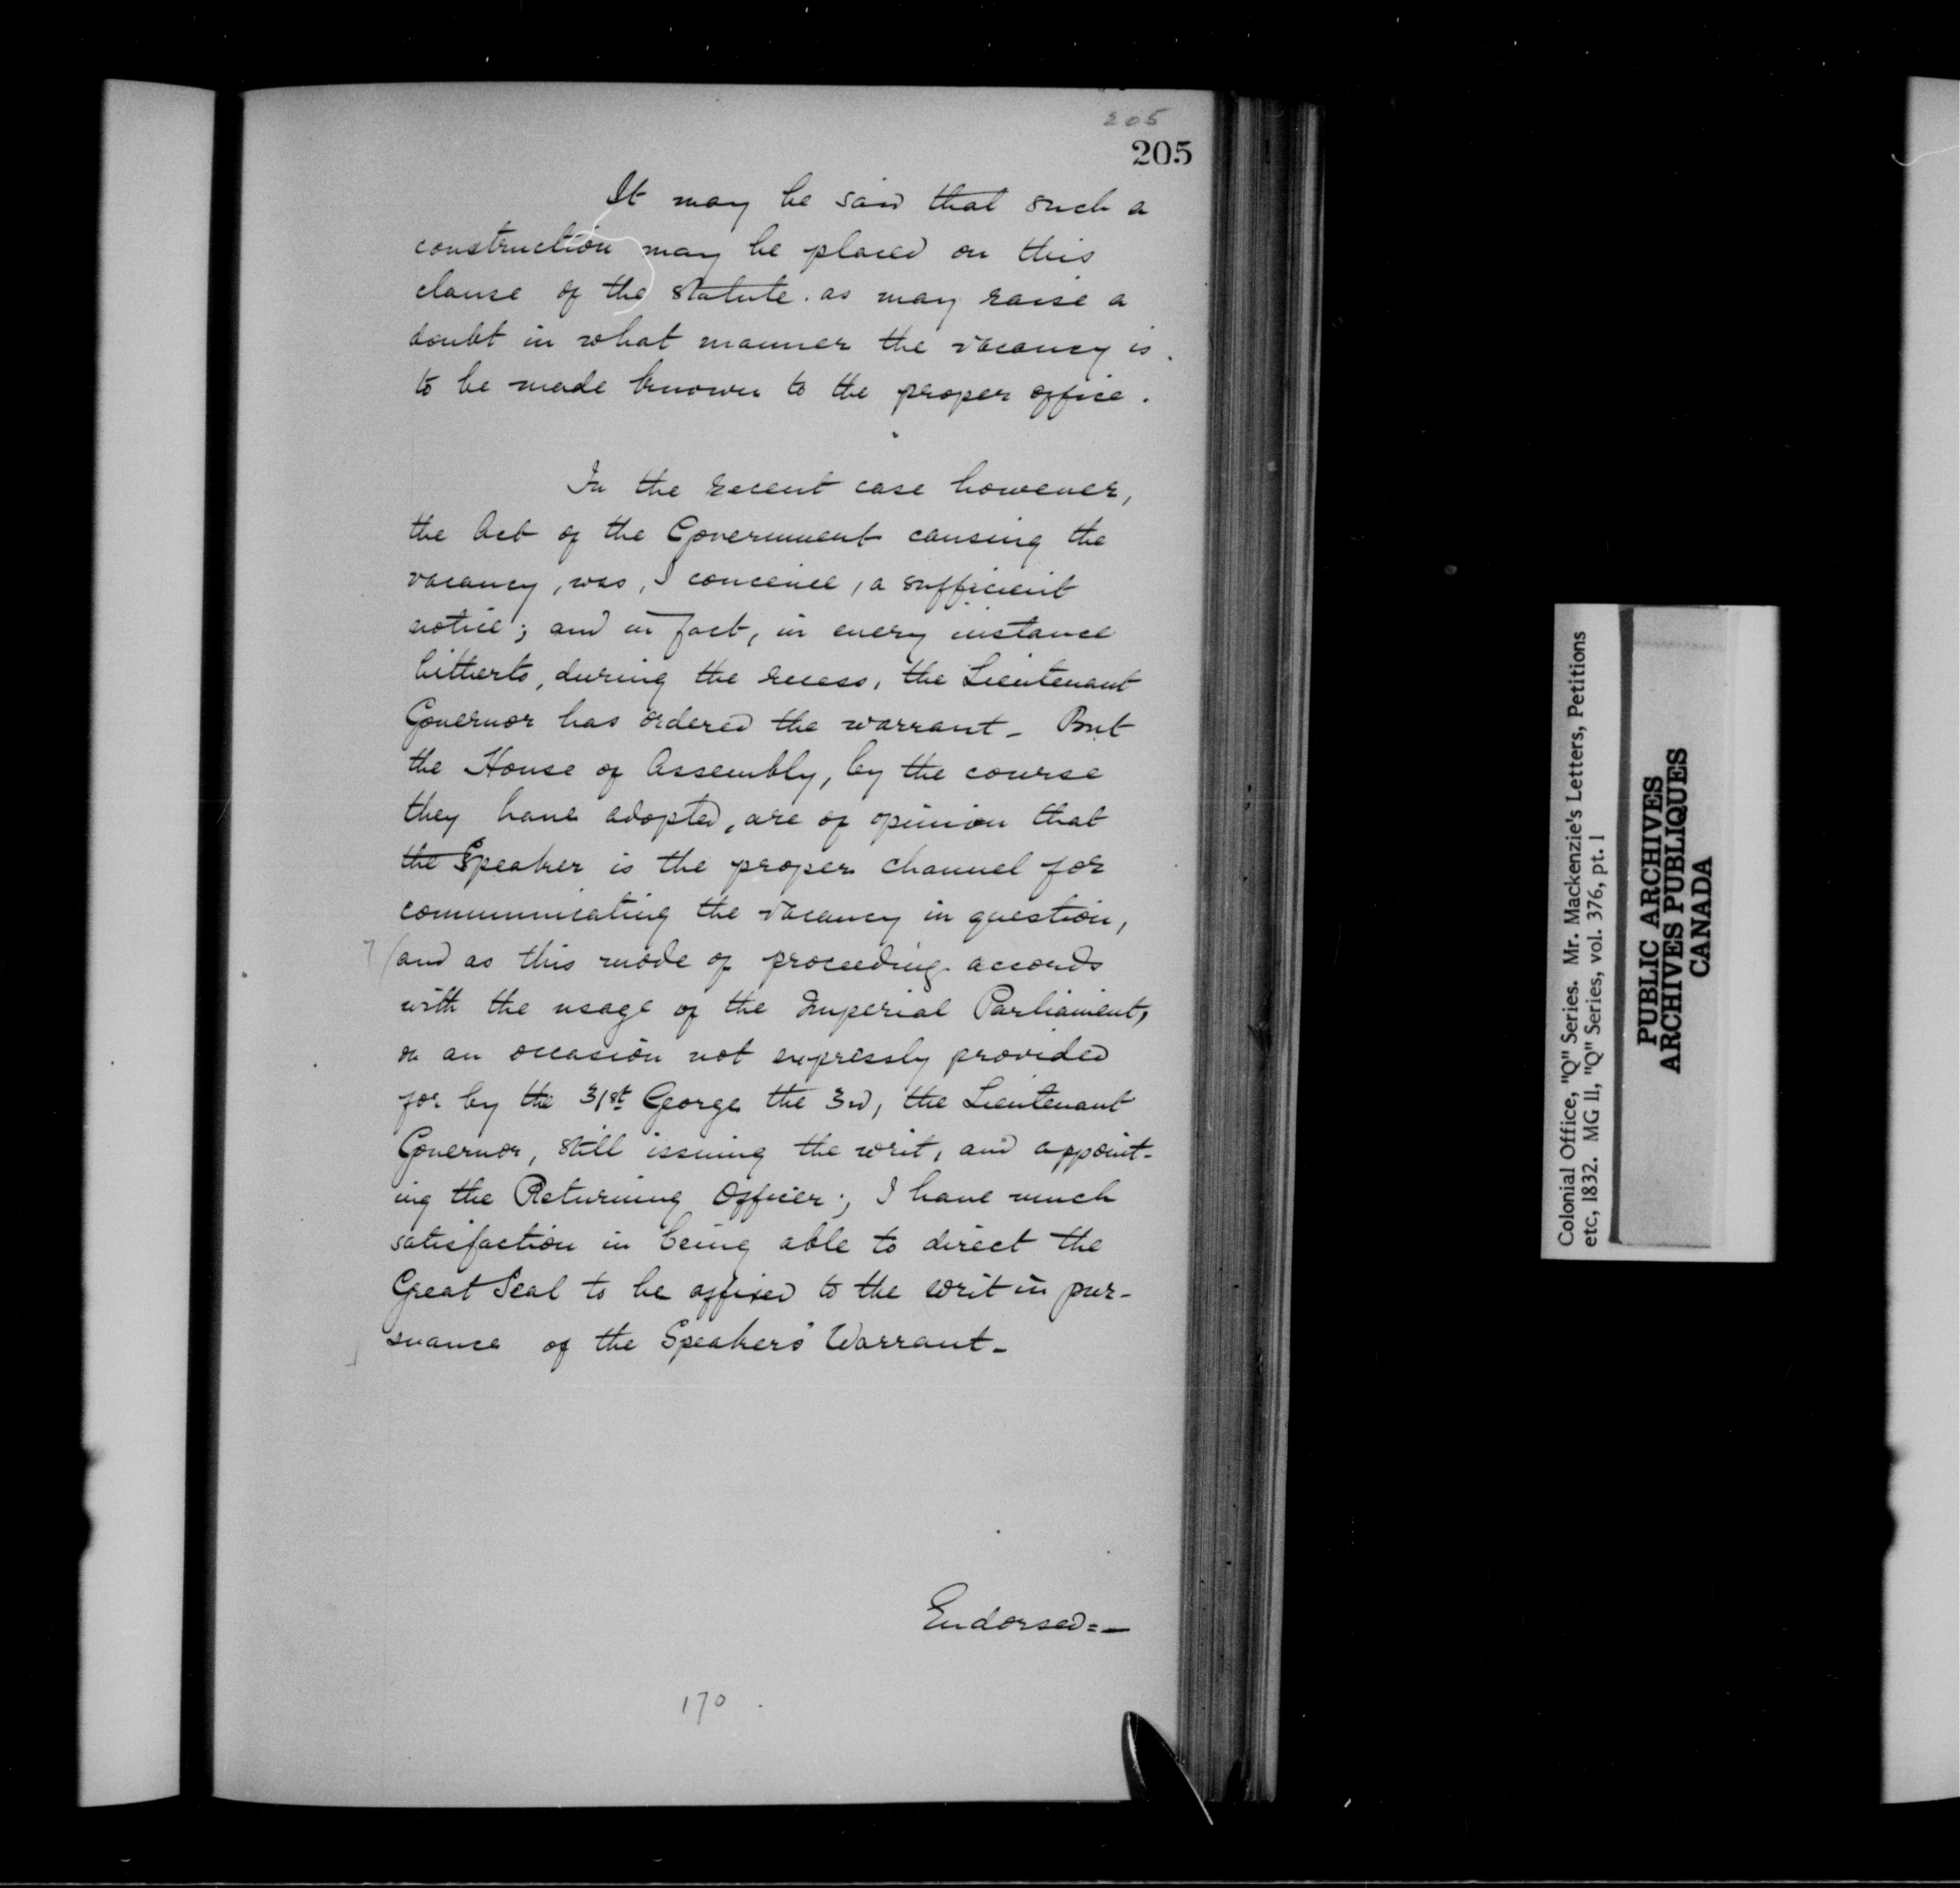 205
205
It may be said that such a
construction may be placed on this
clause of the statute. as may raise a
doubt in what manner the vacancy is
to be made known to the proper office.
In the recent case however,
the Act of the Government causing the
vacancy, was, I conceive, a sufficient
notice; and in fact, in every instance
hitherto, during the recess, the Lieutenant
Governor has ordered the warrant - But
the House of Assembly, by the course
they have adopted, are of opinion that
the Speaker is the proper channel for
communicating the vacancy in question,
(and as this mode of proceeding accords
with the usage of the Imperial Parliament,
on an occasion not expressly provided
for by the 31st George the 3rd, the Lieutenant
Governor, still issuing the writ, and appoint-
ing the Returning Officer; I have much
satisfaction in being able to direct the
Great Seal to be affixed to the writ in pur-
suance of the Speaker's Warrant -
Endorsed =-
170
Colonial Office, "Q" Series. Mr. Mackenzie's Letters, Petitions
etc, 1832. MG 11, "Q" Series, vol. 376, pt. 1
PUBLIC ARCHIVES
ARCHIVES PUBLIQUES
CANADA